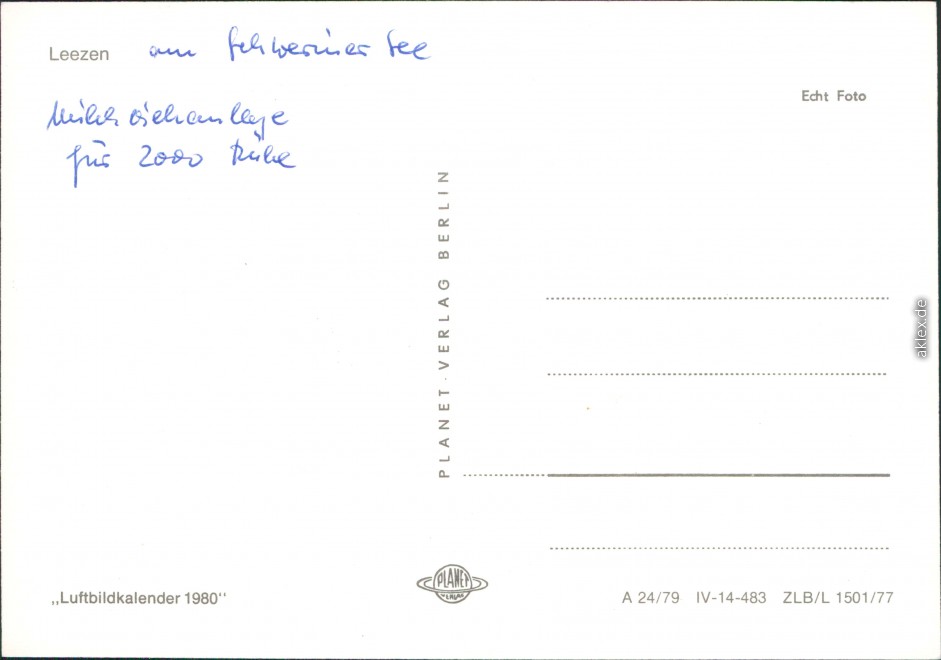 Leezen am Schweriner See
Milchviehanlage
für 2000 Kühe
Echt Foto
PLANET-VERLAG BERLIN
aklex.de
PLANET
VERLAG
„Luftbildkalender 1980"
A 24/79 IV-14-483 ZLB/L 1501/77